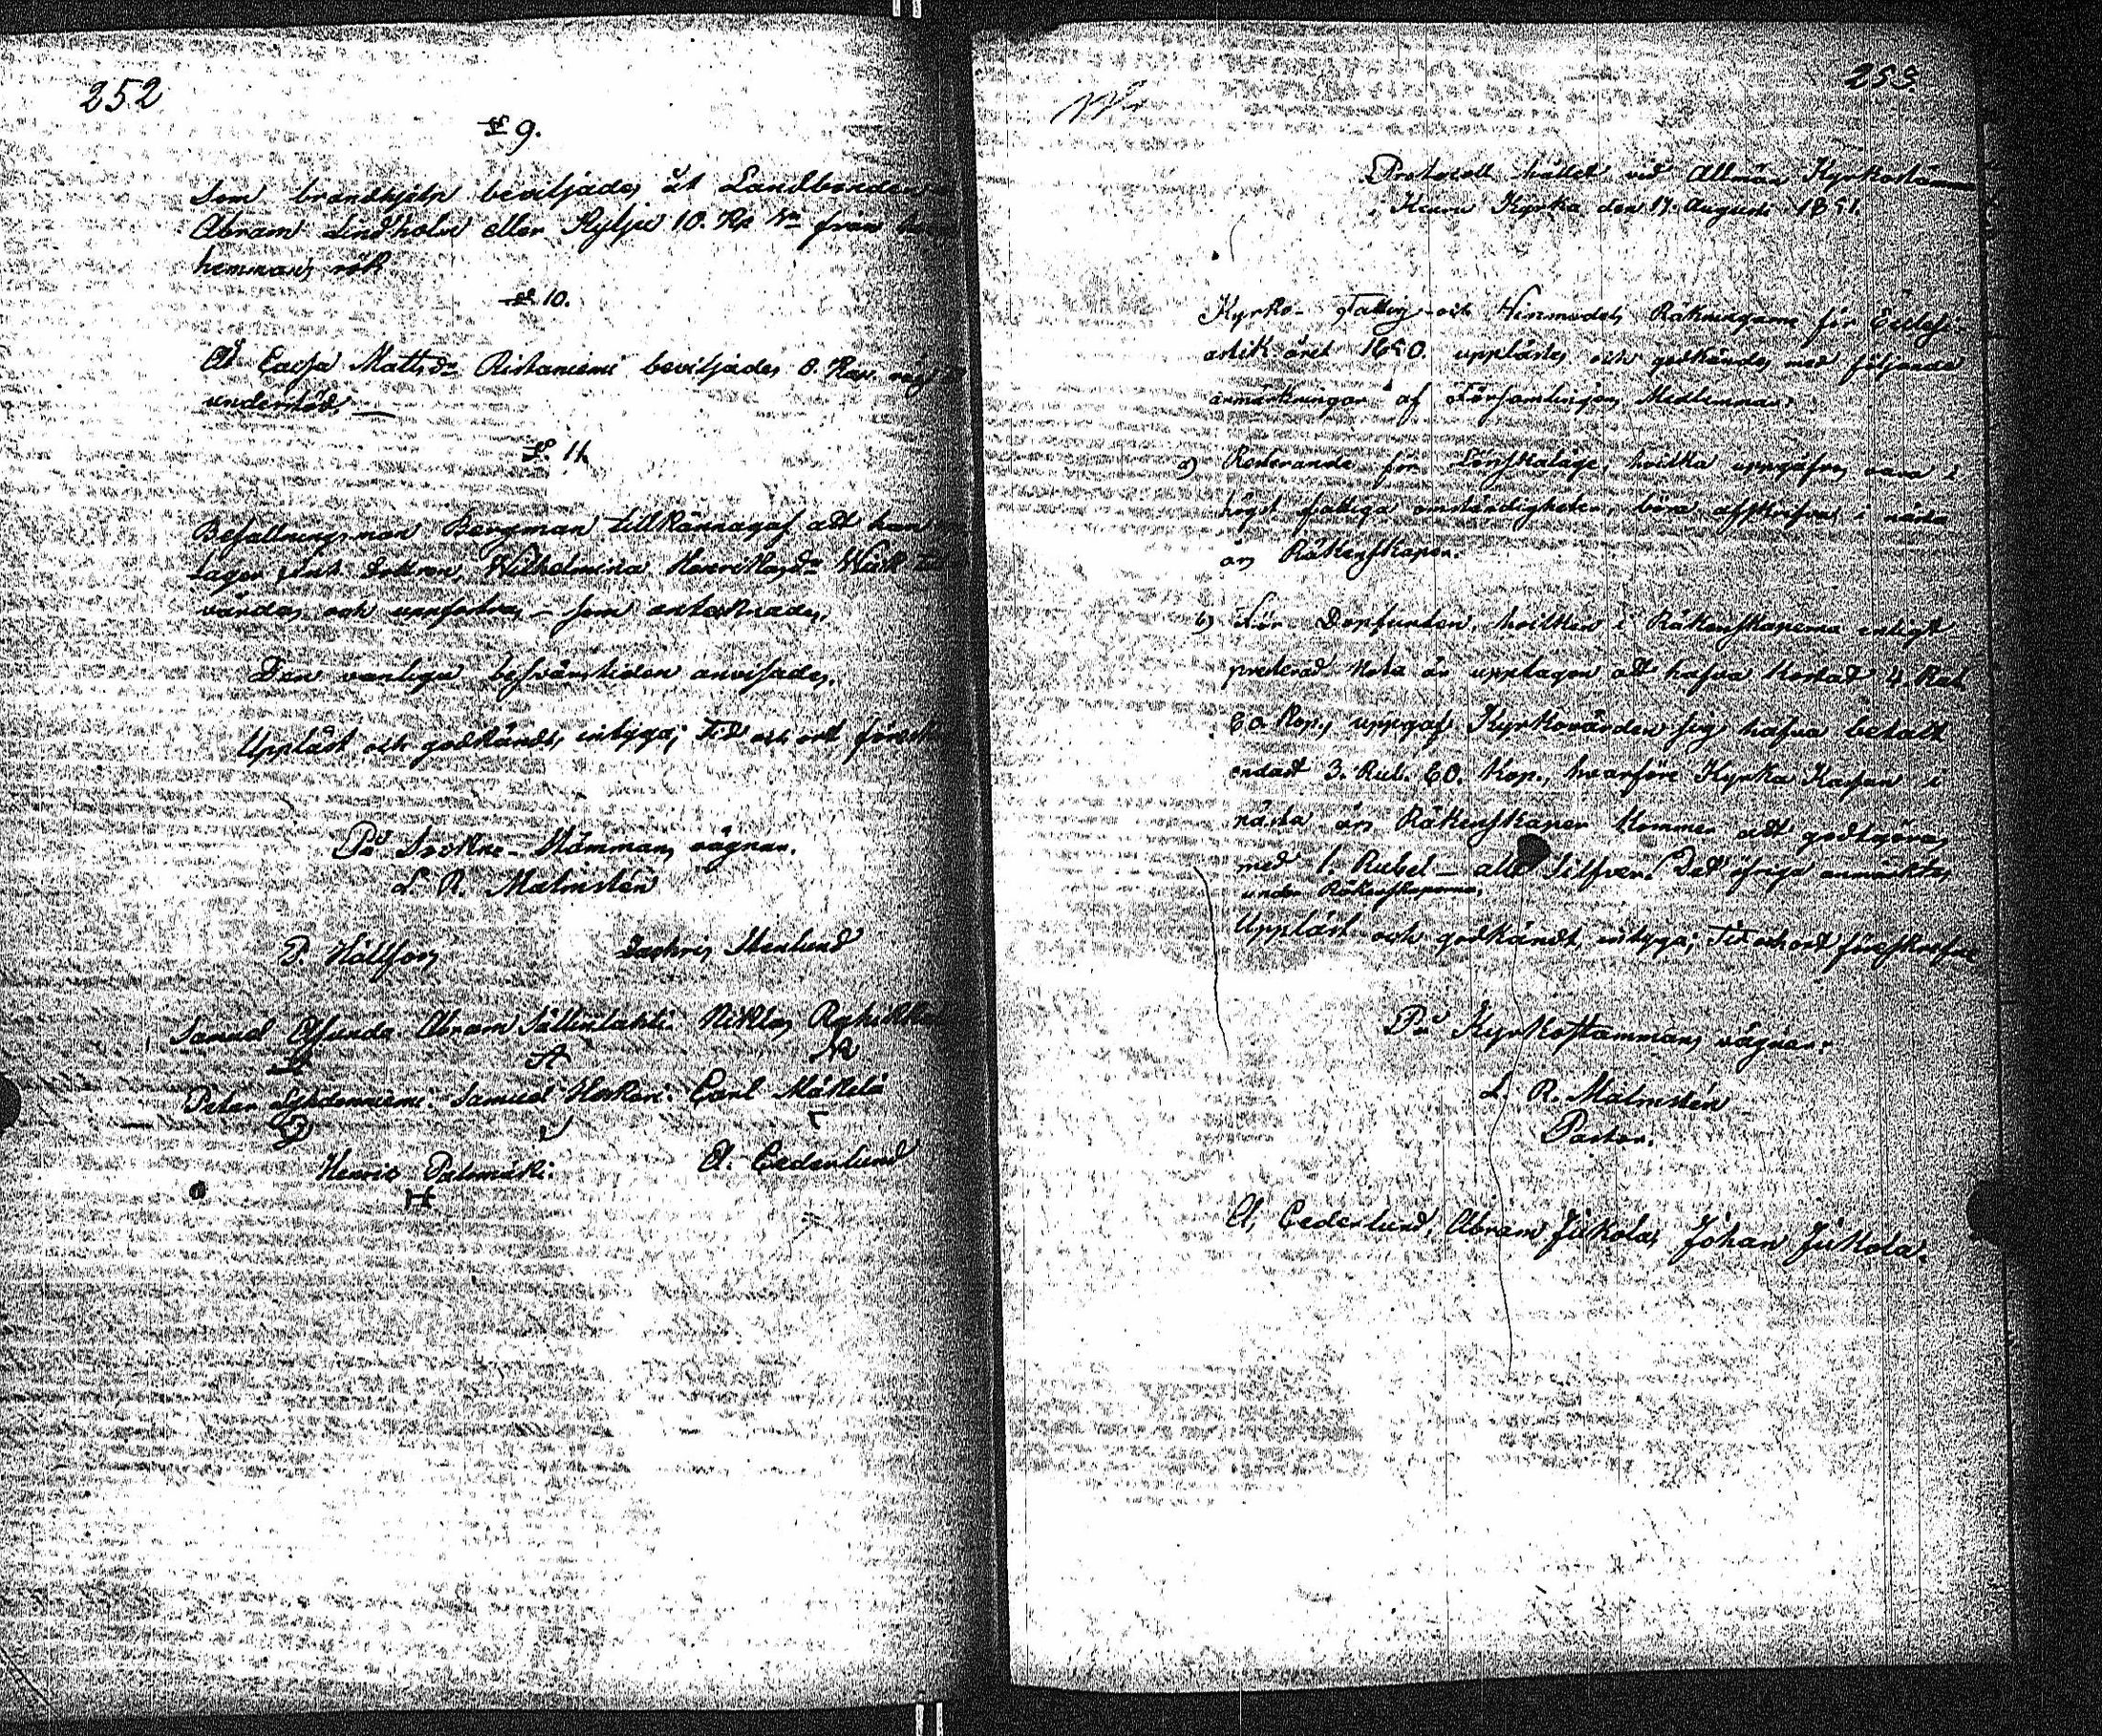 252
§ 9.
Som brandhjelp beviljades åt Landbonden
Abram Lindholm eller Kyljä 10. Kp Sr från
hemmans rök
§ 10.
Åt Cajsa Mattsdr Ristaniemi beviljades 8. Kap. råg
understöd, —
§ 11
Befallningsman Bergman tillkännagaf att han
tager sint Wilhelmina Henriksdr
vårdas och uppfostras, — som antecknades.
Den vanliga besvärstiden anvisades.
Uppläst och godkändt, intyga; Tid och ort föreskr
På Sockne-Stämmans vägnar.
L. R. Malmstén
P. Hällfors Zachris Stenlund
Samuel Abram Sällinlahti. Niklas
A N
Peter Samuel Carl Mäkelä
Henric Palomäki. A. Cederlund
H
253.
Protocoll hållet vid Allmän Kyrkostämma
i Keuru Kyrka den 17. Augusti 1851.
Kyrko- Fattig- och Räkningarne för Eclesi-
astik året 1850. upplästes och godkändes med följande
anmärkningar af Församlingens Medlemmar:
a) Resterande för hvilka uppgåfvos vara i
högst fattiga omständigheter, böra afskrifvas i nästa
års Räkenskaper.
b) För Dopfunten, hvilken i Räkenskaperna enligt
qvitterad Nota är upptagen att hafva kostat 4. Rub
60. Kop., uppgaf Kyrkovärden sig hafva betalt
endast 3. Rub. 60. Kop., hvarföre Kyrko Kassan i
nästa års Räkenskaper kommer att godtgöras
med 1. Rubel — allt Silfver. Det öfriga anmärktes
under Räkenskaperna.
Uppläst och godkändt, intyga; Tid och ort föreskrefne
På Kyrkostämmans vägnar:
L. R. Malmstén
Pastor.
A. Cederlund, Abram Jukola, Johan Jukola.